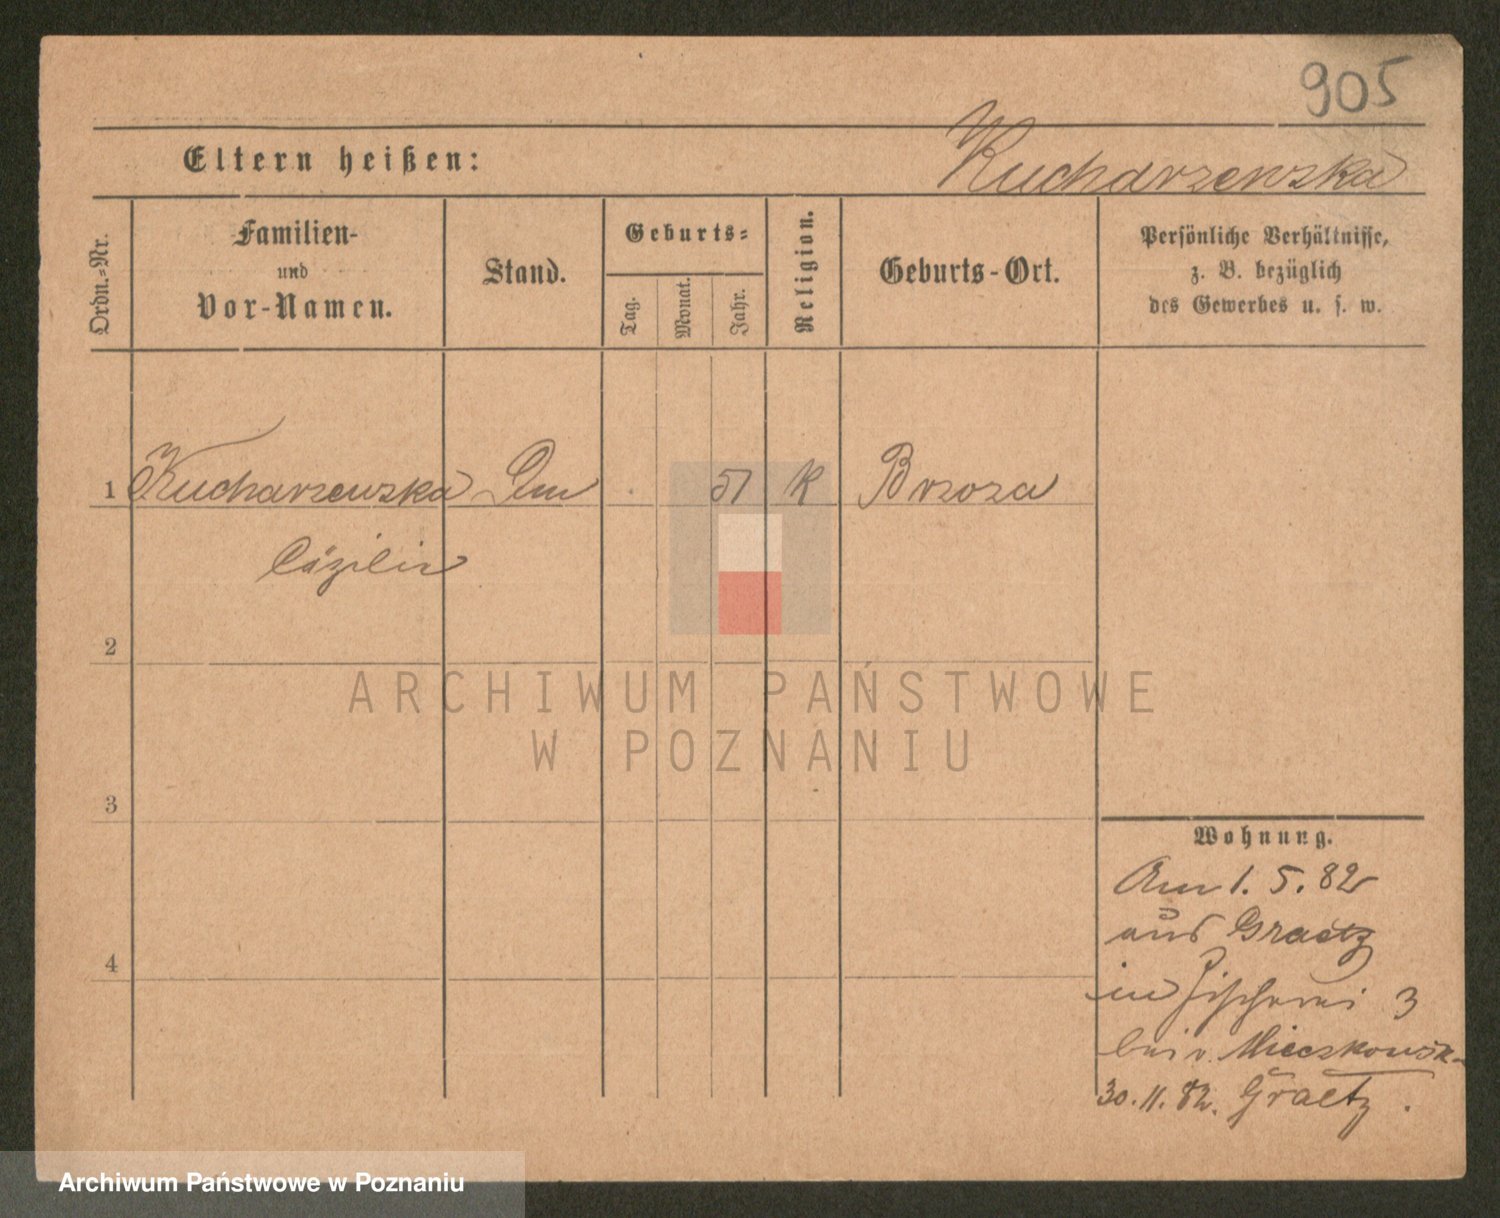 905
Eltern heißen:
Kucharzewska
Ordn.-Nr.
Familien-
und
Vor-Namen.
Stand.
Geburts-
Tag.
Monat.
Jahr.
Religion.
Geburts-Ort.
Persönliche Verhältnisse,
z. B. bezüglich
des Gewerbes u. s. w.
1 Kucharzewska 51 K Brzoza
Cäzilie
2
ARCHIWUM PAŃSTWOWE
W POZNANIU
3
Wohnung.
Am 1. 5. 82
aus Graetz
4
in Fischerei 3
bei v. Mieczkowsk
30. 11. 82. Graetz.
Archiwum Państwowe w Poznaniu